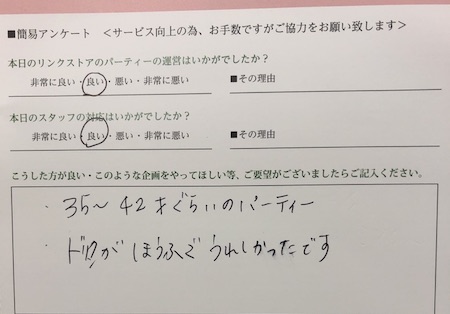 ■簡易アンケート <サービス向上の為、お手数ですがご協力をお願い致します>
本日のリンクストアのパーティーの運営はいかがでしたか?
非常に良い・良い・悪い・非常に悪い ■その理由
本日のスタッフの対応はいかがでしたか?
非常に良い・良い・悪い・非常に悪い ■その理由
こうした方が良い・このような企画をやってほしい等、ご要望がございましたらご記入ください。
・35〜42才ぐらいのパーティー
・ドリンクがほうふでうれしかったです